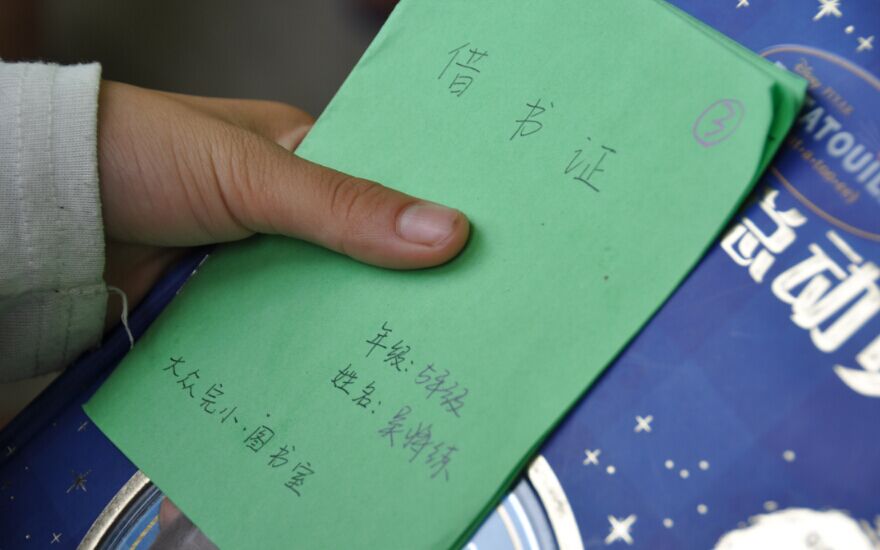 借书证
③
年级：5年级
姓名：吴
大众完小·图书室
Disney PIXAR
ATOUIL
总动